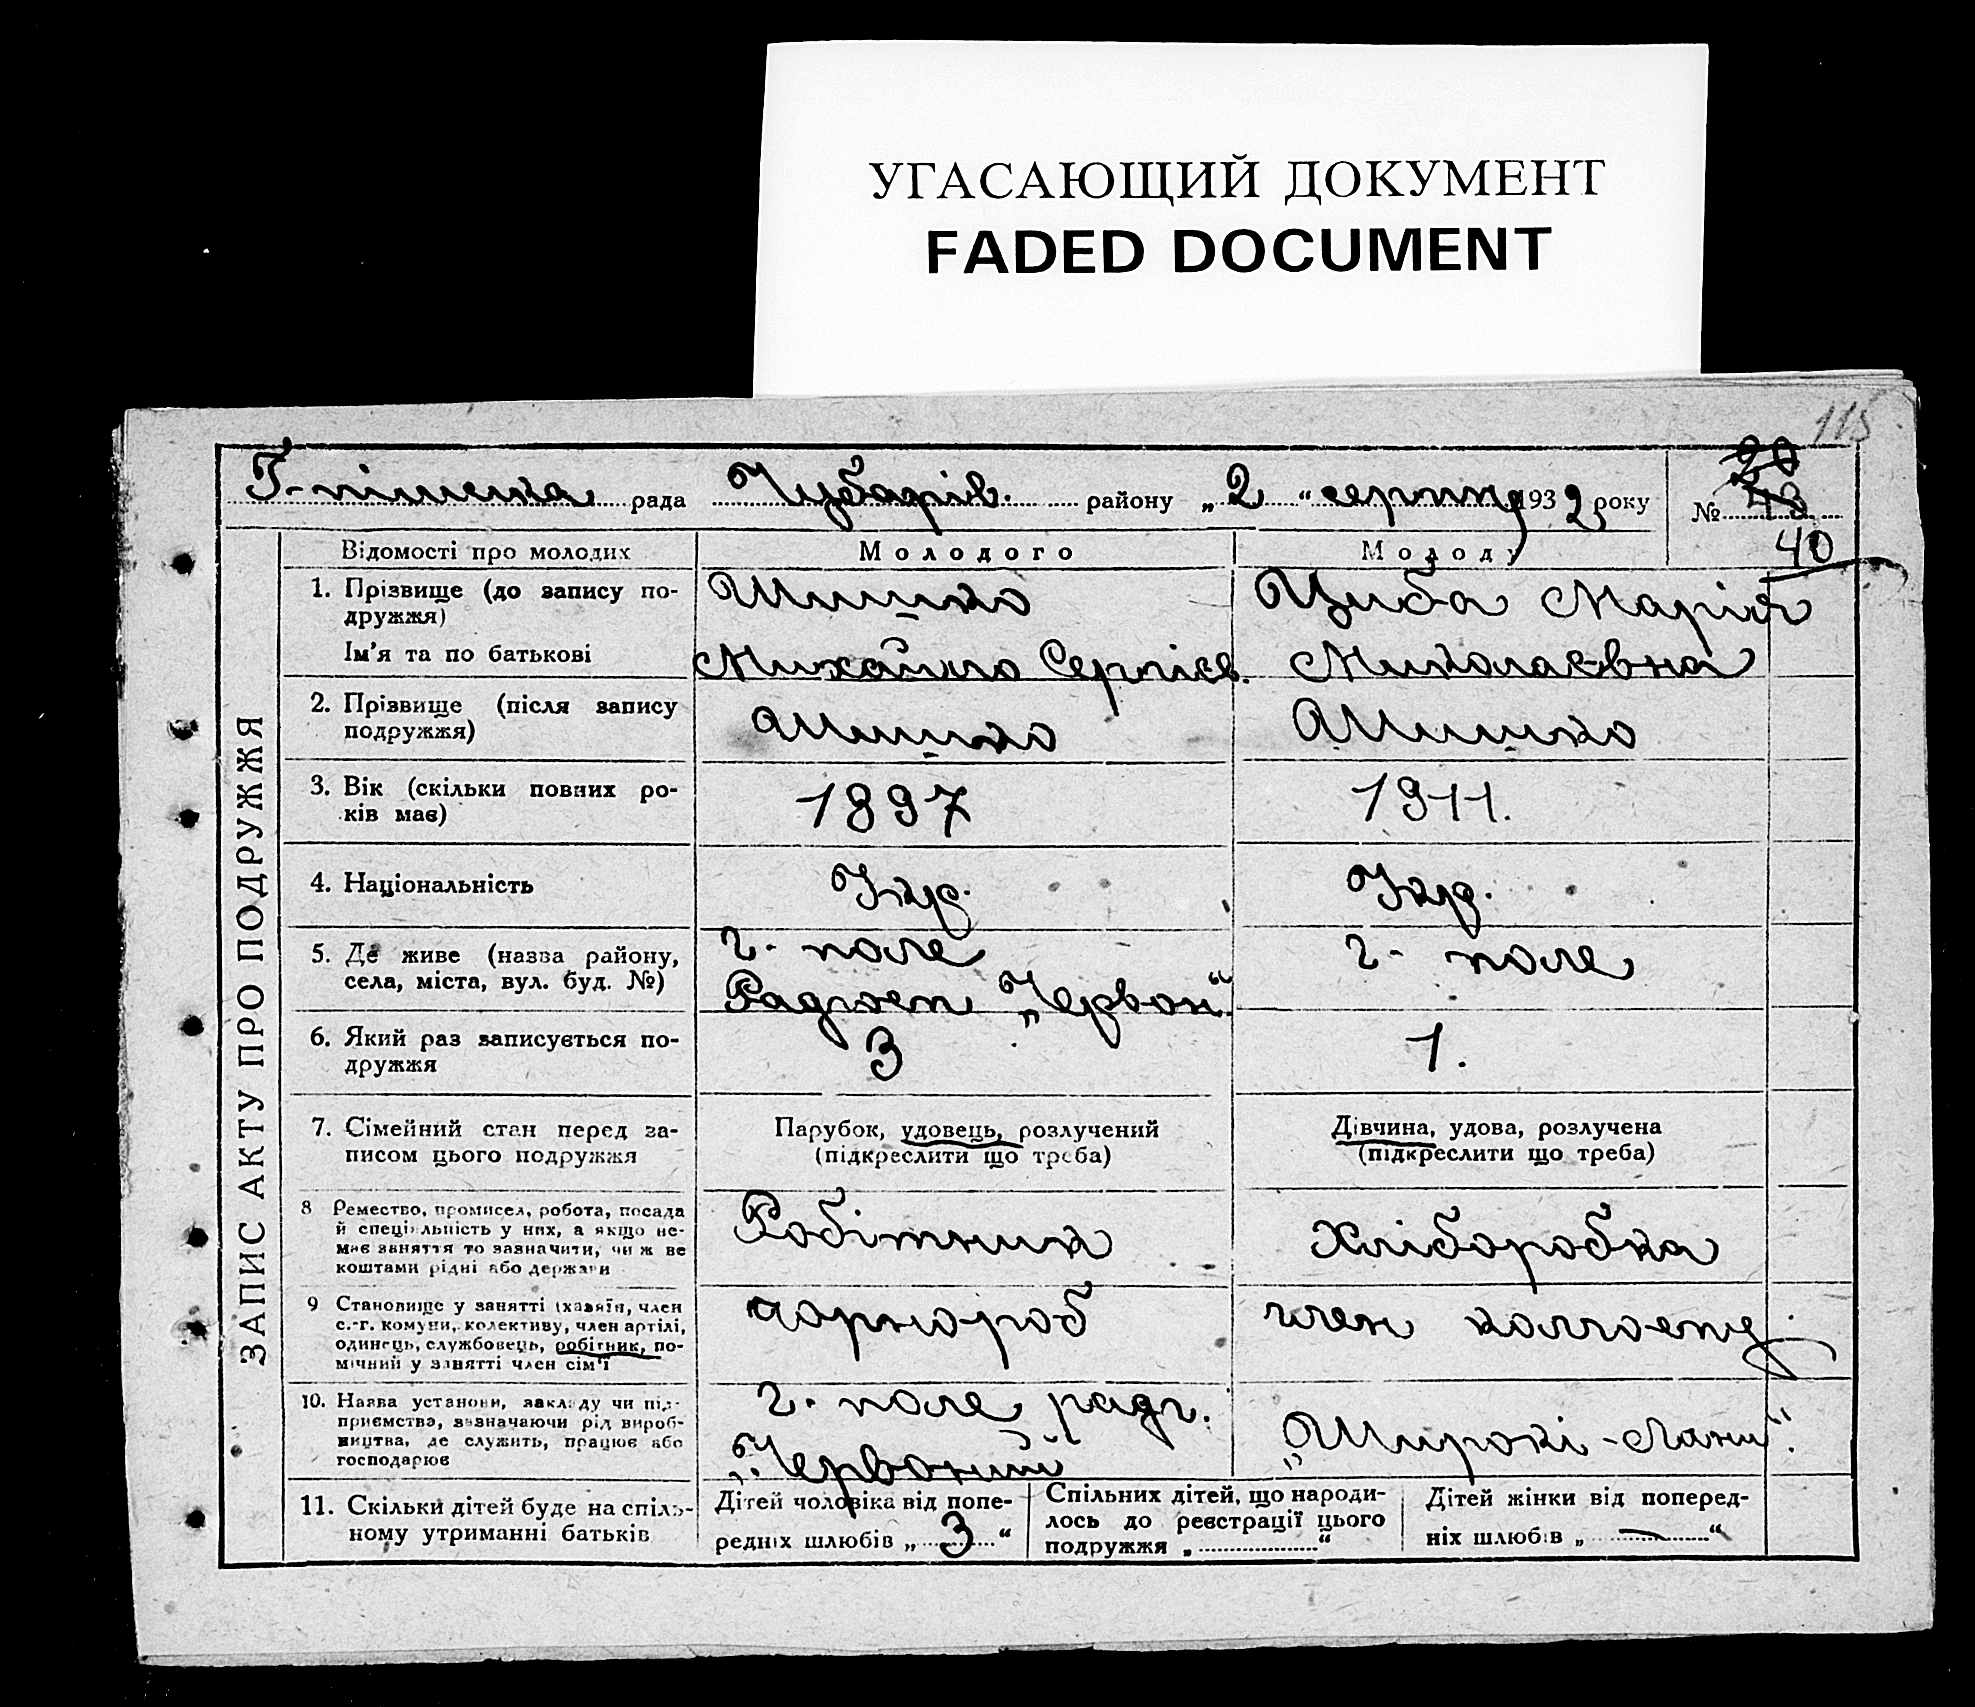 УГАСАЮЩИЙ ДОКУМЕНТ
FADED DOCUMENT
115
Г-пільська рада Чубарів. району „ 2 “ серпня 1932 року № 20 48
40
ЗАПИС АКТУ ПРО ПОДРУЖЖЯ
Відомості про молодих Молодого Молоду
1. Прізвище (до запису по-
дружжя) Шишко Циба Марія
Ім'я та по батькові Михайло Сергієв. Миколаєвна
2. Прізвище (після запису
подружжя) Шишко Шишко
3. Вік (скільки повних ро-
ків має) 1897 1911.
4. Національність Укр. Укр.
5. Де живе (назва району,
села, міста, вул. буд. №) г-поле г-поле
Радгосп „Червон“
6. Який раз записується по-
дружжя 3 1.
7. Сімейний стан перед за-
писом цього подружжя
Парубок, удовець, розлучений
(підкреслити що треба)
Дівчина, удова, розлучена
(підкреслити що треба)
8 Ремество, промисел, робота, посада
й спеціяльність у них, а якщо не-
має заняття то зазначити, чи ж ве
коштами рідні або держави
Робітник Хліборобка
9 Становище у занятті (хазяїн, член
с.-г. комуни, колективу, член артілі,
одинець, службовець, робітник, по-
мічний у занятті член сім'ї
чорнороб член колгоспу
10. Назва установи, закладу чи під-
приємства, зазначаючи рід вироб-
ництва, де служить, працює або
господарює
г-поле радг.
„Червоний „Широкі-Лани“.
11. Скільки дітей буде на спіль-
ному утриманні батьків
Дітей чоловіка від попе-
редніх шлюбів „ 3 “
Спільних дітей, що народи-
лось до реєстрації цього
подружжя „ “
Дітей жінки від поперед-
ніх шлюбів „ — “